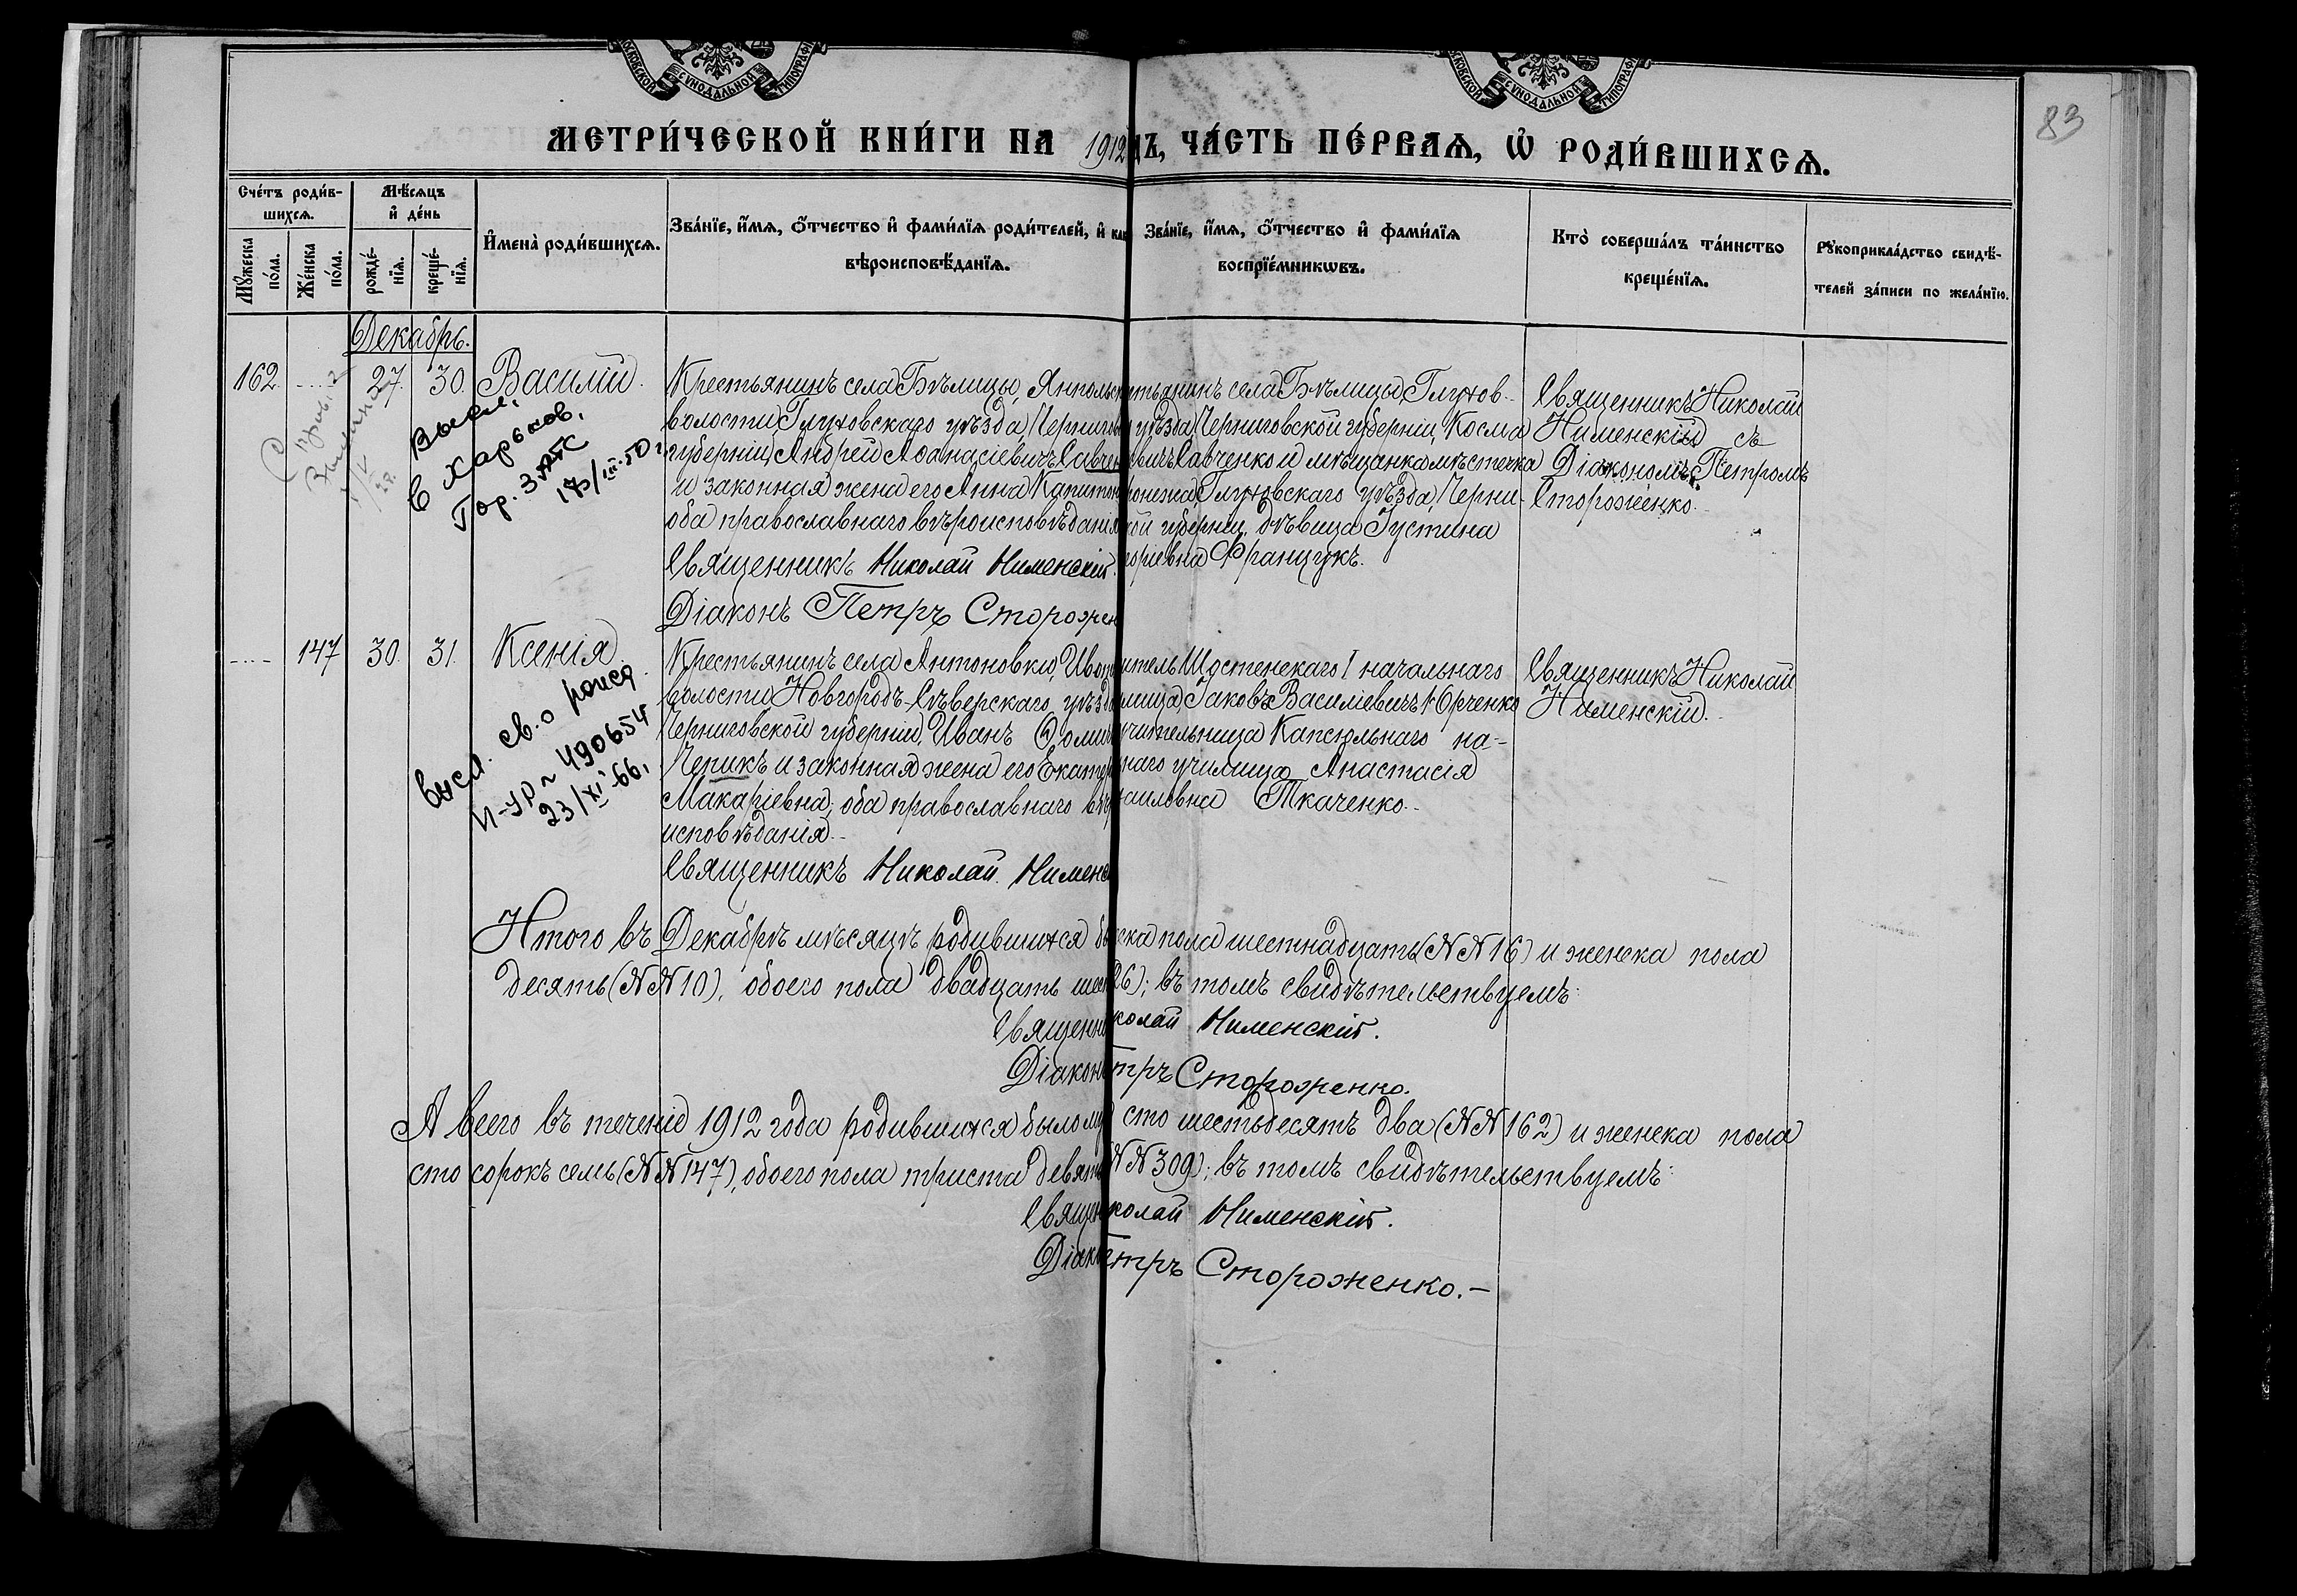 МЕТРИ́ЧЕСКОЙ КНИ́ГИ НА 1912 ДЪ, ЧА́СТЬ ПЕ́РВАѦ, Ѡ РОДИ́ВШИХСѦ.
83
Сче́тъ роди́в-
шихсѧ.
Мѣ́сѧцъ
и де́нь
Мꙋ́жеска по́ла.
Же́нска по́ла.
рожде́-
нїѧ.
креще́-
нїѧ.
Имена̀ роди́вшихсѧ.
Зва́нїе, и́мѧ, о́тчество и фами́лїѧ роди́телей, и как
вѣроисповѣ́данїѧ.
Зва́нїе, и́мѧ, о́тчество и фами́лїѧ
воспрїе́мникѡвъ.
Кто̀ соверша́лъ та́инство
креще́нїѧ.
Рꙋкоприкла́дство свидѣ́-
телей за́писи по жела́нїю.
Декабрь.
162. 27. 30. Василій.
Крестьянинъ села Бѣлицы, Ямпольск
волости, Глуховскаго уѣзда, Чернигов
губерніи, Андрей Аѳанасіевичъ Савчен
и законная жена его Анна Капитон
оба православнаго вѣроисповѣданія
Священникъ Николай Нименскій.
Діаконъ Петръ Сторожен
тьянинъ села Бѣлицы, Глухов-
уѣзда, Черниговской губерніи, Косма
евичъ Савченко и мѣщанка мѣстечка
онежа Глуховскаго уѣзда, Черни-
кой губерніи, дѣвица Густина
оріевна Францукъ.
Священникъ Николай
Нименскій съ
Діакономъ Петромъ
Стороженко.
Высл.
в Харьков.
Гор. ЗАГС
17/III-50 г.
147 30. 31. Ксенія
Крестьянинъ села Антоновки, Иво
волости, Новгородъ-Сѣверскаго уѣзд
Черниговской губерніи, Иванъ Ѳоми
Чепикъ и законная жена его Екатер
Макаріевна; оба православнаго вѣр
исповѣданія.
Священникъ Николай Нименс
итель Шостенскаго I начальнаго
лища, Іаковъ Василіевичъ Юрченко
учительница Капсюльнаго на-
наго училища Анастасія
аиловна Ткаченко.
Священникъ Николай
Нименскій.
высл. св. о рожд.
II-УР № 490654
23/XI-66.
Итого въ Декабрѣ мѣсяцѣ родившихся бы ска пола шестнадцать (NN 16) и женска пола
десять (NN 10), обоего пола двадцать шес 26); въ томъ свидѣтельствуемъ:
Священни колай Нименскій.
Діакон тръ Стороженко.
А всего въ теченіе 1912 года родившихся было му сто шестьдесятъ два (NN 162) и женска пола
сто сорокъ семь (NN 147), обоего пола триста девять NN 309); въ томъ свидѣтельствуемъ:
Священ колай Нименскій.
Діак етръ Стороженко.